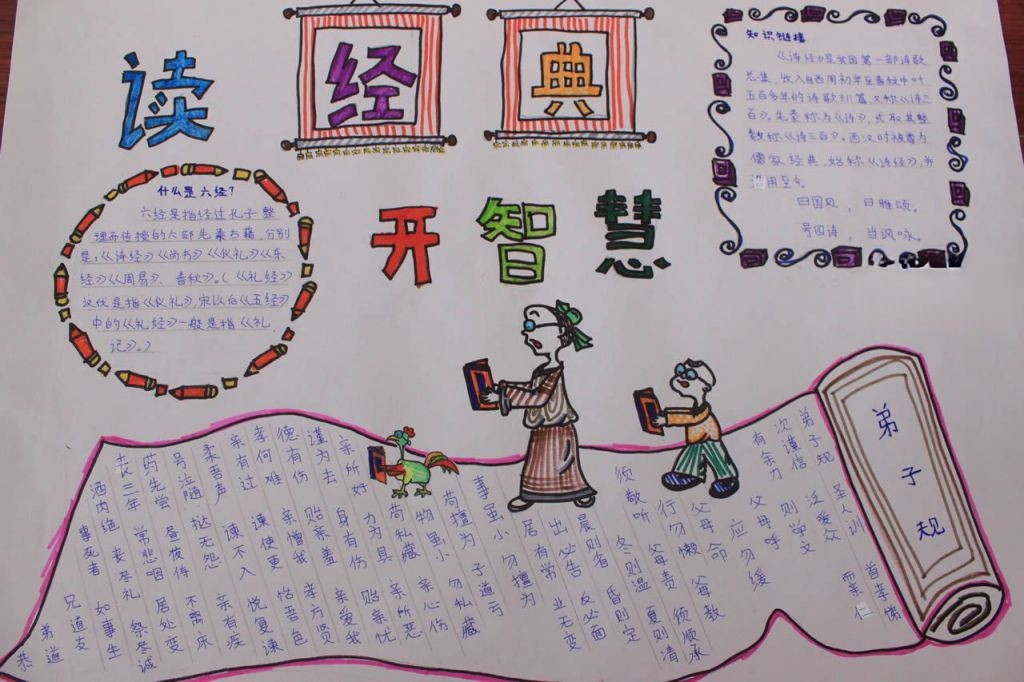 读经典
开智慧
什么是六经?
六经是指经过孔子整
理而传授的六部先秦古籍.分别
是:《诗经》《尚书》《仪礼》《乐
经》《周易》、春秋》。(《礼经》
汉代是指《仪礼》,宋以后《五经》
中的《礼经》一般是指《礼
记》。)
知识链接
《诗经》是我国第一部诗歌
总集,收入自西周初年至春秋中叶
五百多年的诗歌311篇,又称《诗三
百》。先秦称为《诗》,或取其整
数称《诗三百》。西汉时被尊为
儒家经典,始称《诗经》,并
沿用至今。
曰国风,曰雅颂。
号四诗,当讽咏。
弟子规
弟子规 圣人训 首孝悌
次谨信 泛爱众 而亲仁
有余力 则学文
父母呼 应勿缓
父母命 行勿懒
父母教 须敬听
父母责 须顺承
冬则温 夏则清
晨则省 昏则定
出必告 反必面
居有常 业无变
事虽小 勿擅为
苟擅为 子道亏
物虽小 勿私藏
苟私藏 亲心伤
亲所好 力为具 亲所恶
谨为去 身有伤 贻亲忧
德有伤 贻亲羞 亲爱我
孝何难 亲憎我 孝方贤
亲有过 谏使更 怡吾色
柔吾声 谏不入 悦复谏
号泣随 挞无怨 亲有疾
药先尝 昼夜侍 不离床
丧三年 常悲咽 居处变
酒肉绝 丧尽礼 祭尽诚
事死者 如事生
兄道友
弟道恭